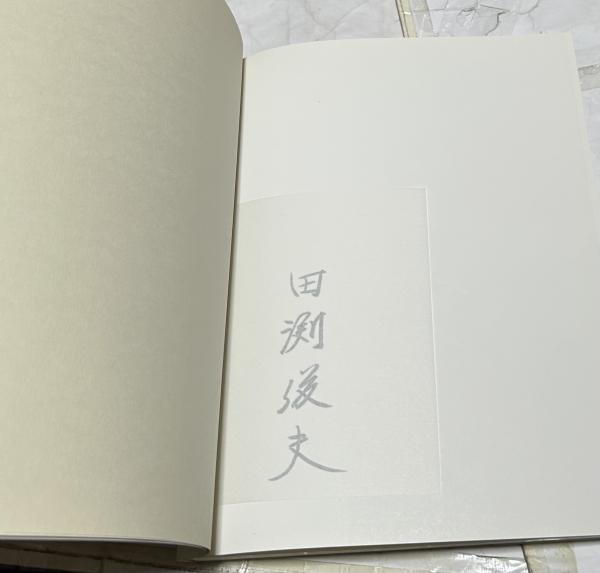 田渕俊夫